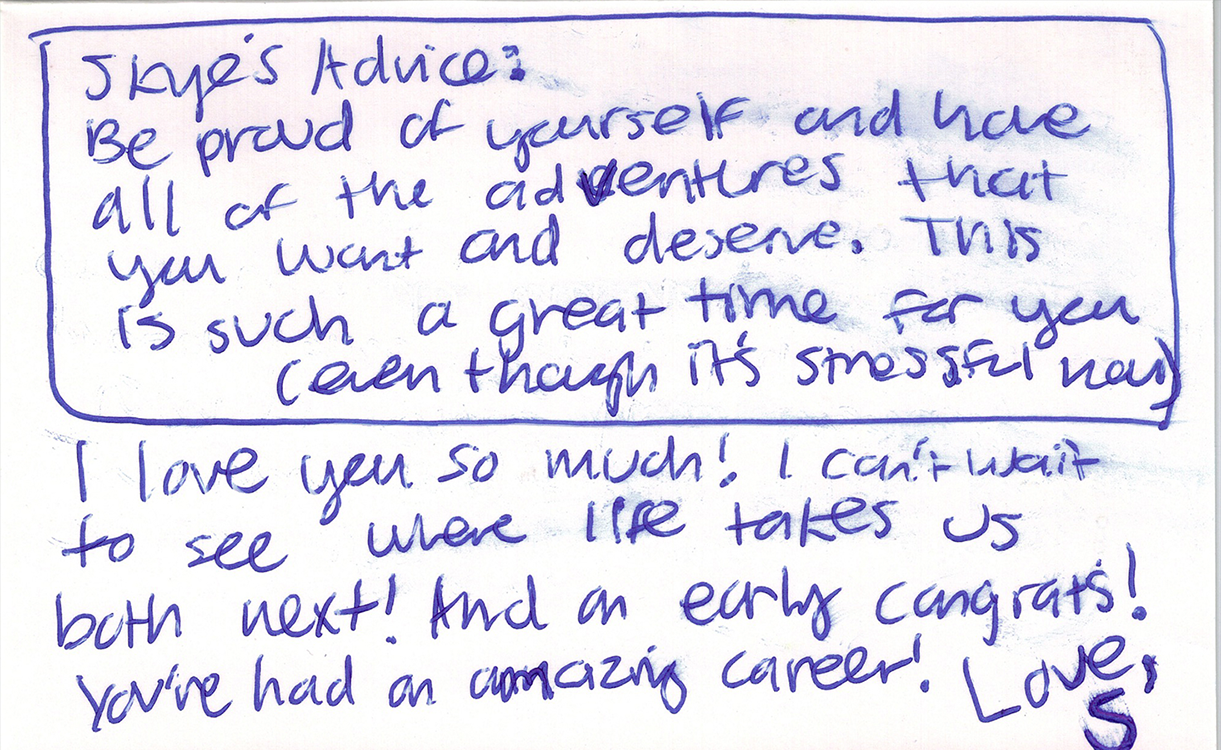 Skye's Advice:
Be proud of yourself and have
all of the adventures that
you want and deserve. This
is such a great time for you
(even though it's stressful now)
I love you so much! I can't wait
to see where life takes us
both next! And an early congrats!
You've had an amazing career! Love,
S